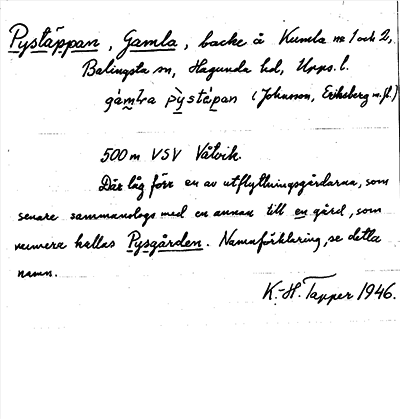 Pystäppan, Gamla, backe å Kumla nr 1 och 2,
Balingsta sn, Hagunda hd, Upps. l.
gámla pỳstápan (Johnson, Eriksberg m.fl.)
500 m VSV Våtvik.
Där låg förr en av utflyttningsgårdarna, som
senare sammanslogs med en annan till en gård, som
numera kallas Pysgården. Namnförklaring, se detta
namn.
K.-H. Tapper 1946.